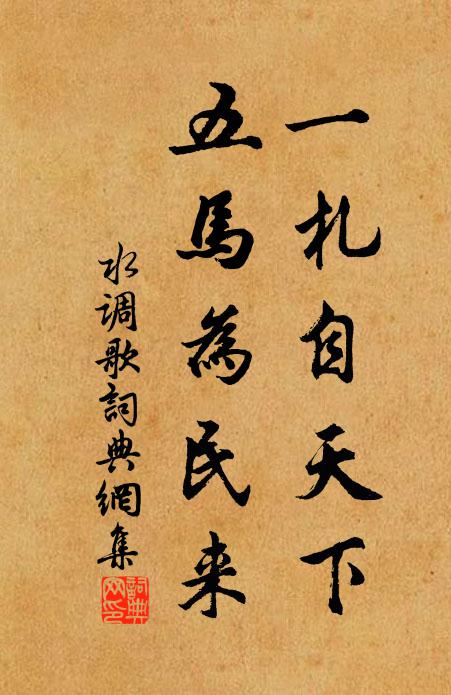 一札自天下
五馬為民来
水调歌詞典網集
詞典
网印